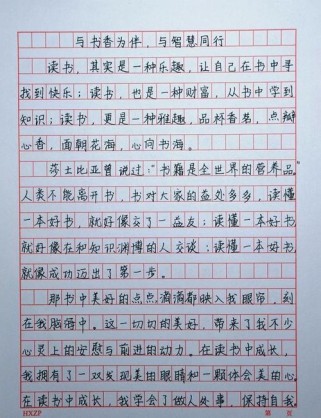 与书香为伴，与智慧同行
读书，其实是一种乐趣，让自己在书中寻
找到快乐；读书，也是一种财富，从书中学到
知识；读书，更是一种雅趣，品杯香茗，点瓣
心香，面朝花海，心向书海。
莎士比亚曾说过："书籍是全世界的营养品。
人类不能离开书，书对大家的益处多多，读懂
一本好书，就好像交了一益友；读懂一本好书，
就好像在和知识渊博的人交谈；读懂一本好书，
就像成功迈出了第一步。
那书中美好的点点滴滴都映入我眼帘，刻
在我脑海中。这一切切的美好，带来了我不少
心灵上的安慰与前进的动力。在读书中成长，
我拥有了一双发现美的眼睛和一颗体会美的心。
在读书中成长，我学会了做人处事，保持自我。
HXZP 第 页